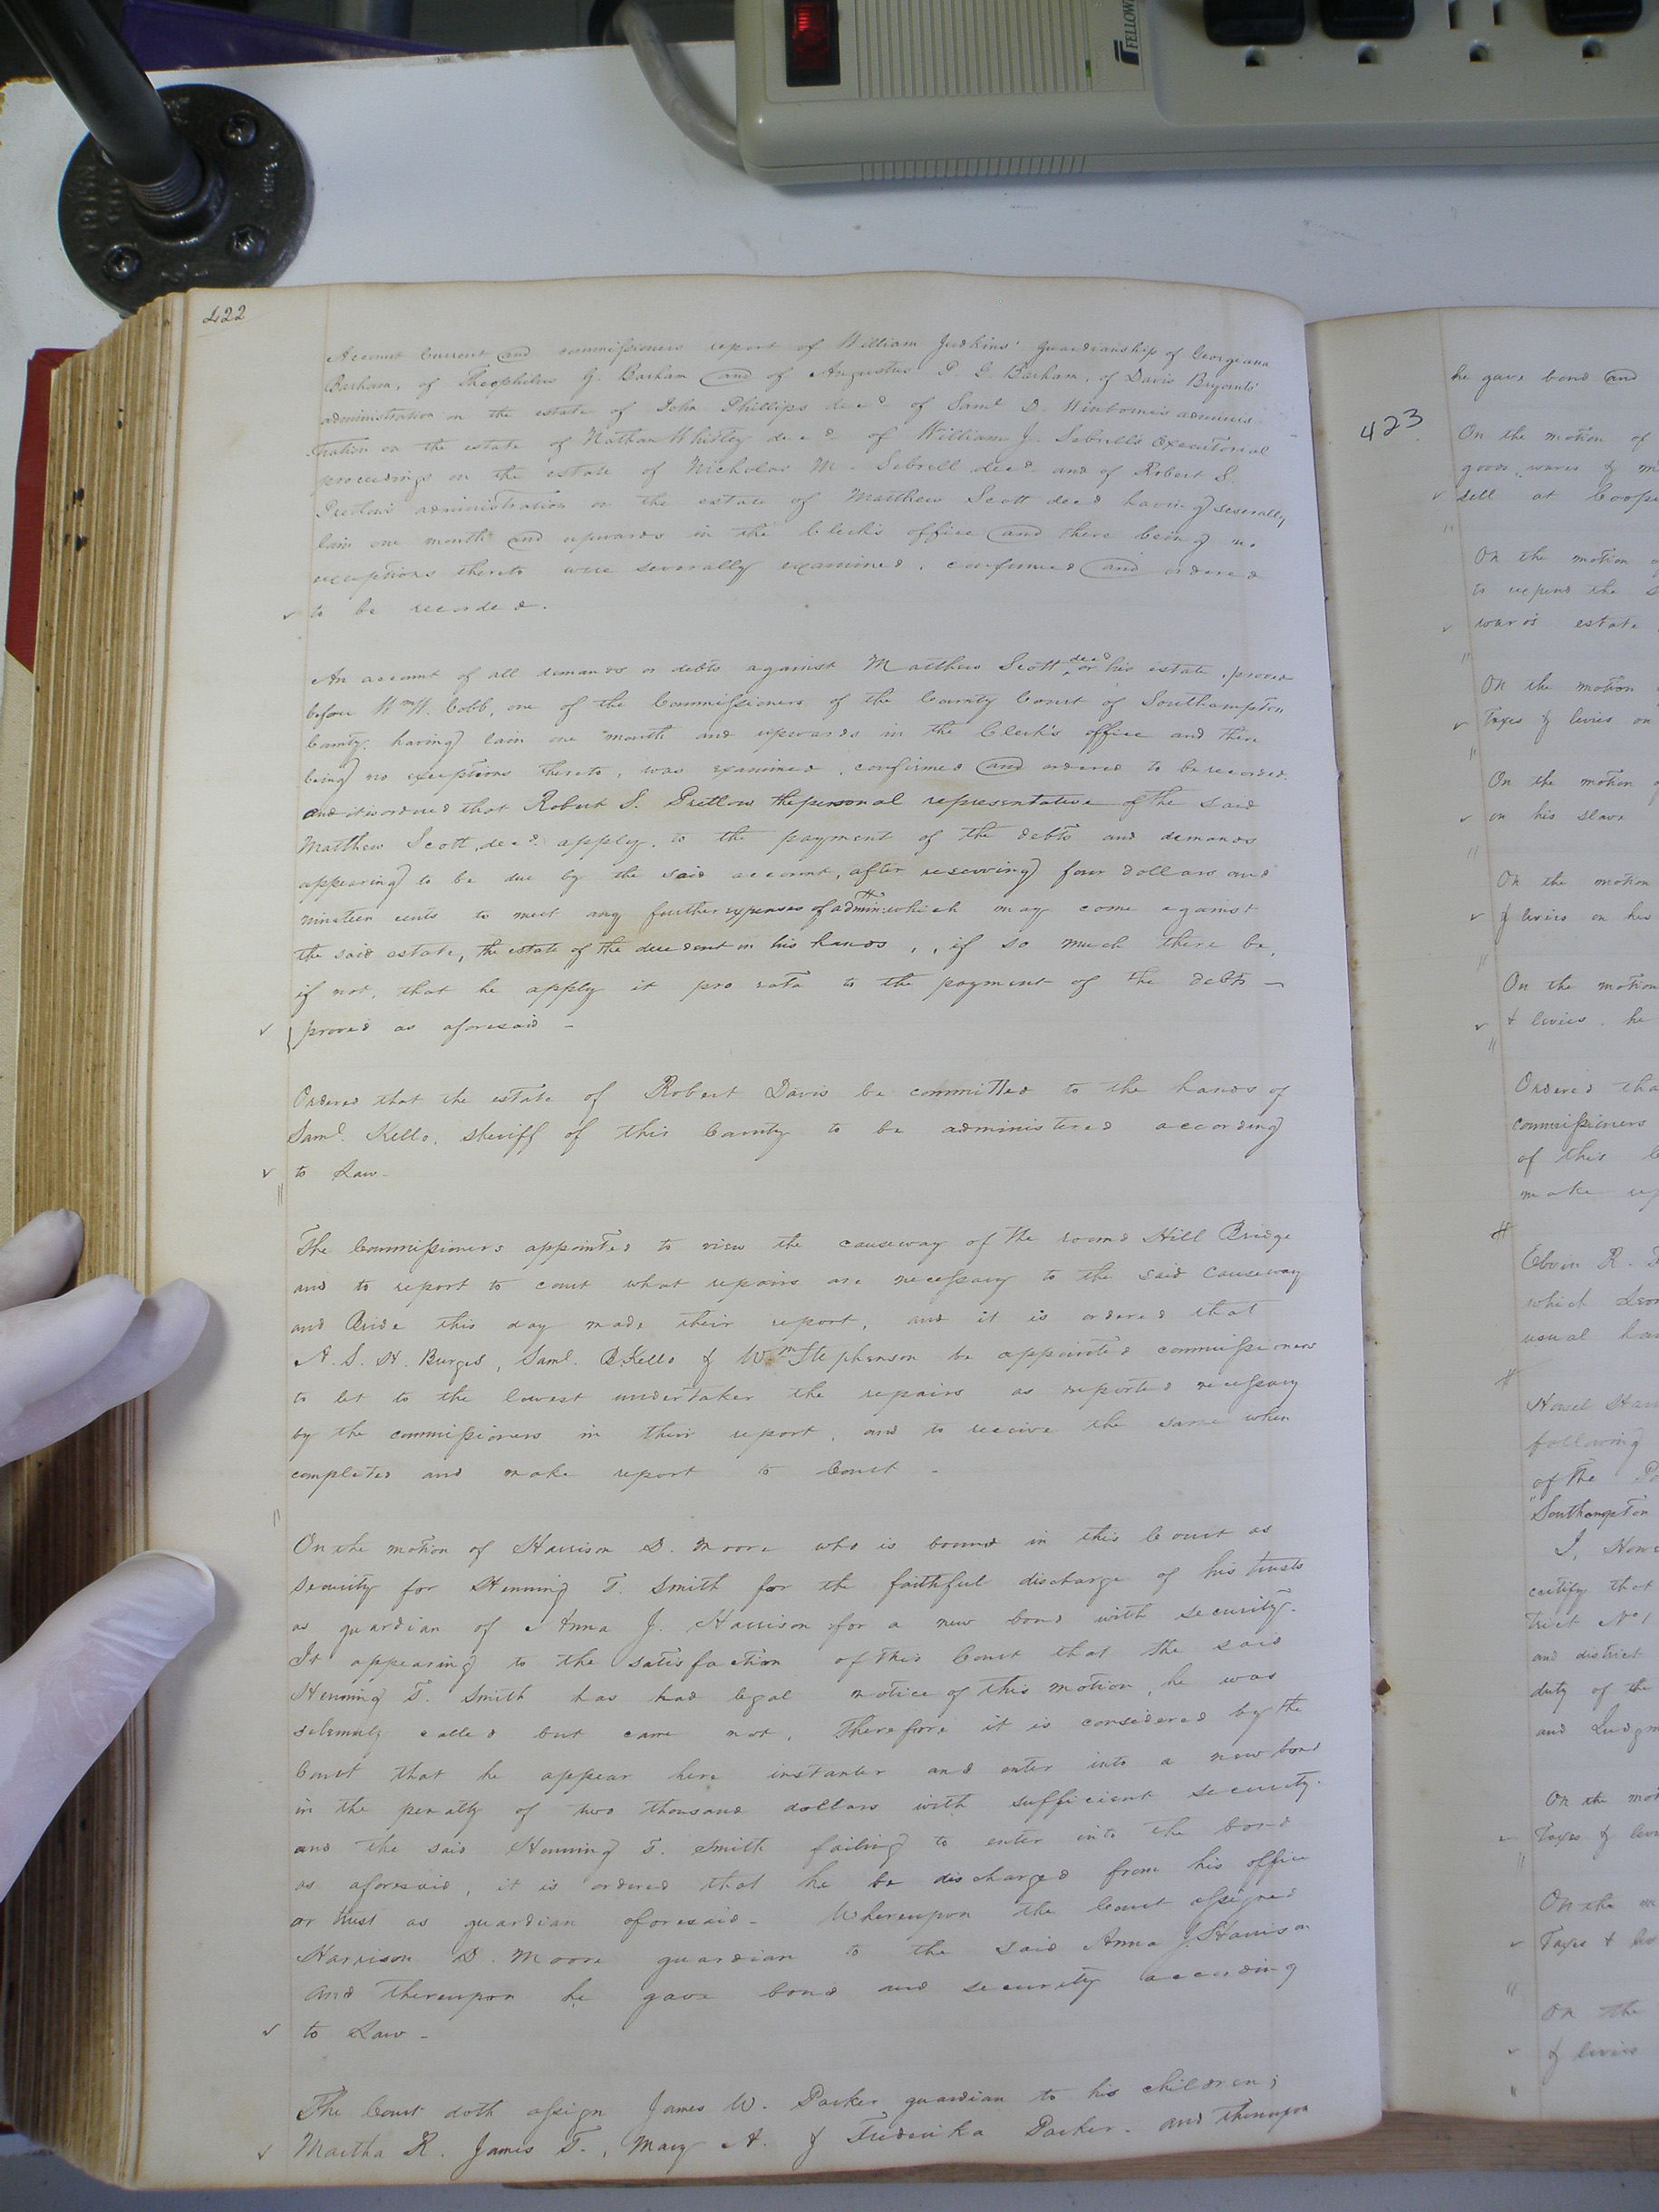 FELLOW
422
Account Current and commissioners report of William Judkins' guardianship of Georgeana
Barham, of Theophilus G. Barham and of Augustus P G. Barham, of Davis Bryants'
administration on the estate of John Phillips decd of Saml D. Winborne's adminis-
tration on the estate of Nathan Whitley decd of William J. Sebrell's Executorial
proceedings on the estate of Nicholas M. Sebrell decd and of Robert S.
Pretlow's administration on the estate of Matthew Scott decd having severally
lain one month and upwards in the Clerk's office and there being no
exceptions thereto were severally examined, confirmed and ordered
to be recorded.
An account of all demands or debts against Matthew Scott decd or his estate, proved
before Wm W. Cobb, one of the Commissioners of the County Court of Southampton
County, having lain one month and upwards in the Clerk's office and there
being no exceptions thereto, was examined, confirmed and ordered to be recorded.
and it is ordered that Robert S. Pretlow the personal representative of the said
Matthew Scott, decd. apply, to the payment of the debts and demands
appearing to be due by the said account, after reserving four dollars and
nineteen cents to meet any further expenses of admin:tn which may come against
the said estate, the estate of the decedent in his hands, if so much there be,
if not, that he apply it pro rata to the payment of the debts -
proved as aforesaid -
Ordered that the estate of Robert Davis be committed to the hands of
Saml. Kello, sheriff of this County to be administered according
to Law -
The Commissioners appointed to view the causeway of the round Hill Bridge
and to report to court what repairs are necessary to the said causeway
and Bride this day made their report, and it is ordered that
A. S. H. Burges, Saml. B. Kello & Wm Stephenson be appointed commissioners
to let to the lowest undertaker the repairs as reported necessary
by the commissioners in their report, and to receive the same when
completed and make report to Court -
On the motion of Harrison D. Moore who is bound in this Court as
security for Henning T. Smith for the faithful discharge of his trusts
as guardian of Anna J. Harrison for a new bond with security.
It appearing to the satisfaction of this Court that the said
Henning T. Smith has had legal notice of this motion, he was
solemnly called but came not, Therefore it is considered by the
Court that he appear here instanter and enter into a new bond
in the penalty of two thousand dollars with sufficient security.
and the said Henning T. Smith failing to enter into the bond
as aforesaid, it is ordered that he be discharged from his office
or trust as guardian aforesaid - Whereupon the Court assigned
Harrison D. Moore guardian to the said Anna J. Harrison
and thereupon he gave bond and security according
to Law -
The Court doth assign James W. Parker guardian to his children;
Martha R. James T., Mary A. & Frederika Parker. and thereupon
423
he gave bond and
On the motion of
goods, wares & m
sell at
On the motion
to expend the
ward's estate
On the motion
Taxes & levies on
On the motion
on his slave
On the motion
& levies on his
On the motion
& levies. he
Ordered tha
commissioners
of this
make
which
usual
following
of the
"Southampton
I,
certify that
trict No 1
and district
duty of the
and Judgm
On the mot
Taxes & lev
On the m
Taxes & lev
On the
& levies